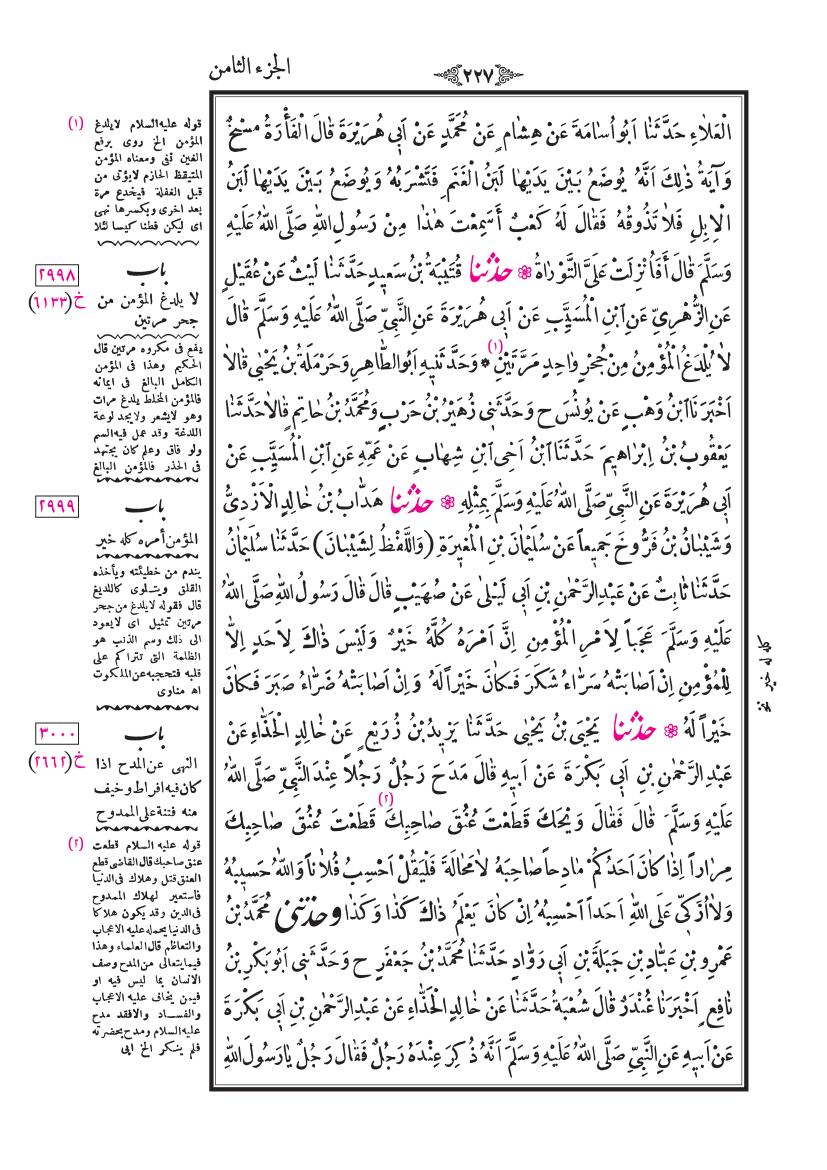 ٢٢٧
الجزء الثامن
الْعَلَاءِ حَدَّثَنَا اَبُو اُسَامَةَ عَنْ هِشَامٍ عَنْ مُحَمَّدٍ عَنْ اَبِى هُرَيْرَةَ قَالَ الْفَأْرَةُ مَسْخٌ
وَآيَةُ ذٰلِكَ اَنَّهُ يُوضَعُ بَيْنَ يَدَيْهَا لَبَنُ الْغَنَمِ فَتَشْرَبُهُ وَيُوضَعُ بَيْنَ يَدَيْهَا لَبَنُ
الْاِبِلِ فَلَا تَذُوقُهُ فَقَالَ لَهُ كَعْبٌ أَسَمِعْتَ هٰذَا مِنْ رَسُولِ اللهِ صَلَّى اللهُ عَلَيْهِ
وَسَلَّمَ قَالَ أَفَأُنْزِلَتْ عَلَىَّ التَّوْرَاةُ ❁ حدثنا قُتَيْبَةُ بْنُ سَعِيدٍ حَدَّثَنَا لَيْثٌ عَنْ عُقَيْلٍ
عَنِ الزُّهْرِىِّ عَنِ ابْنِ الْمُسَيَّبِ عَنْ اَبِى هُرَيْرَةَ عَنِ النَّبِىِّ صَلَّى اللهُ عَلَيْهِ وَسَلَّمَ قَالَ
لَا يُلْدَغُ الْمُؤْمِنُ مِنْ جُحْرٍ وَاحِدٍ مَرَّتَيْنِ (١) * وَحَدَّثَنِيهِ اَبُو الطَّاهِرِ وَحَرْمَلَةُ بْنُ يَحْيٰى قَالَا
اَخْبَرَنَا ابْنُ وَهْبٍ عَنْ يُونُسَ ح وَحَدَّثَنِى زُهَيْرُ بْنُ حَرْبٍ وَمُحَمَّدُ بْنُ حَاتِمٍ قَالَا حَدَّثَنَا
يَعْقُوبُ بْنُ اِبْرَاهِيمَ حَدَّثَنَا ابْنُ اَخِى ابْنِ شِهَابٍ عَنْ عَمِّهِ عَنِ ابْنِ الْمُسَيَّبِ عَنْ
اَبِى هُرَيْرَةَ عَنِ النَّبِىِّ صَلَّى اللهُ عَلَيْهِ وَسَلَّمَ بِمِثْلِهِ ❁ حدثنا هَدَّابُ بْنُ خَالِدٍ الْاَزْدِىُّ
وَشَيْبَانُ بْنُ فَرُّوخَ جَمِيعاً عَنْ سُلَيْمَانَ بْنِ الْمُغِيرَةِ (وَاللَّفْظُ لِشَيْبَانَ) حَدَّثَنَا سُلَيْمَانُ
حَدَّثَنَا ثَابِتٌ عَنْ عَبْدِ الرَّحْمٰنِ بْنِ اَبِى لَيْلٰى عَنْ صُهَيْبٍ قَالَ قَالَ رَسُولُ اللهِ صَلَّى اللهُ
عَلَيْهِ وَسَلَّمَ عَجَباً لِاَمْرِ الْمُؤْمِنِ اِنَّ اَمْرَهُ كُلَّهُ خَيْرٌ وَلَيْسَ ذَاكَ لِاَحَدٍ اِلَّا
لِلْمُؤْمِنِ اِنْ اَصَابَتْهُ سَرَّاءُ شَكَرَ فَكَانَ خَيْراً لَهُ وَاِنْ اَصَابَتْهُ ضَرَّاءُ صَبَرَ فَكَانَ
خَيْراً لَهُ ❁ حدثنا يَحْيَى بْنُ يَحْيٰى حَدَّثَنَا يَزِيدُ بْنُ زُرَيْعٍ عَنْ خَالِدٍ الْحَذَّاءِ عَنْ
عَبْدِ الرَّحْمٰنِ بْنِ اَبِى بَكْرَةَ عَنْ اَبِيهِ قَالَ مَدَحَ رَجُلٌ رَجُلاً عِنْدَ النَّبِىِّ صَلَّى اللهُ
عَلَيْهِ وَسَلَّمَ قَالَ فَقَالَ وَيْحَكَ قَطَعْتَ عُنُقَ صَاحِبِكَ (٢) قَطَعْتَ عُنُقَ صَاحِبِكَ
مِرَاراً اِذَا كَانَ اَحَدُكُمْ مَادِحاً صَاحِبَهُ لَا مَحَالَةَ فَلْيَقُلْ اَحْسِبُ فُلَاناً وَاللهُ حَسِيبُهُ
وَلَا اُزَكِّى عَلَى اللهِ اَحَداً اَحْسِبُهُ اِنْ كَانَ يَعْلَمُ ذَاكَ كَذَا وَكَذَا وحدثنى مُحَمَّدُ بْنُ
عَمْرِو بْنِ عَبَّادِ بْنِ جَبَلَةَ بْنِ اَبِى رَوَّادٍ حَدَّثَنَا مُحَمَّدُ بْنُ جَعْفَرٍ ح وَحَدَّثَنِى اَبُو بَكْرِ بْنُ
نَافِعٍ اَخْبَرَنَا غُنْدَرٌ قَالَ شُعْبَةُ حَدَّثَنَا عَنْ خَالِدٍ الْحَذَّاءِ عَنْ عَبْدِ الرَّحْمٰنِ بْنِ اَبِى بَكْرَةَ
عَنْ اَبِيهِ عَنِ النَّبِىِّ صَلَّى اللهُ عَلَيْهِ وَسَلَّمَ اَنَّهُ ذُكِرَ عِنْدَهُ رَجُلٌ فَقَالَ رَجُلٌ يَا رَسُولَ اللهِ
كله له خير نخ
(١) قوله عليه السلام لا يلدغ
المؤمن الخ روى برفع
الغين فى ومعناه المؤمن
المتيقظ الحازم لا يؤتى من
قبل الغفلة فيخدع مرة
بعد اخرى ويكسرها نهى
اى ليكن فطنا كيسا لئلا
٢٩٩٨
باب
خ (٦١٣٣)
لا يلدغ المؤمن من
جحر مرتين
يقع فى مكروه مرتين قال
الحكيم وهذا فى المؤمن
الكامل البالغ فى ايمانه
فالمؤمن المخلط يلدغ مرات
وهو لا يشعر ولا يجد لوعة
اللدغة وقد عمل فيه السم
ولو فاق وعلم كان يجتهد
فى الحذر فالمؤمن البالغ
٢٩٩٩
باب
المؤمن أمره كله خير
يندم من خطيئته ويأخذه
القلق ويتلوى كاللديغ
قال فقوله لا يلدغ من جحر
مرتين تمثيل اى لا يعود
الى ذلك وسم الذنب هو
الظلمة التى تتراكم على
قلبه فتحجبه عن الملكوت
اه مناوى
٣٠٠٠
باب
خ (٢٦٦٢)
النهى عن المدح اذا
كان فيه افراط وخيف
منه فتنة على الممدوح
(٢) قوله عليه السلام قطعت
عنق صاحبك قال القاضى قطع
العنق قتل وهلاك فى الدنيا
فاستعير لهلاك الممدوح
فى الدين وقد يكون هلاكا
فى الدنيا يحمله عليه الاعجاب
والتعاظم قال العلماء وهذا
فيما يتعالى من المدح وصف
الانسان بما ليس فيه او
فيمن يخاف عليه الاعجاب
والفساد والافقد مدح
عليه السلام ومدح بحضرته
فلم ينكر الخ ابى